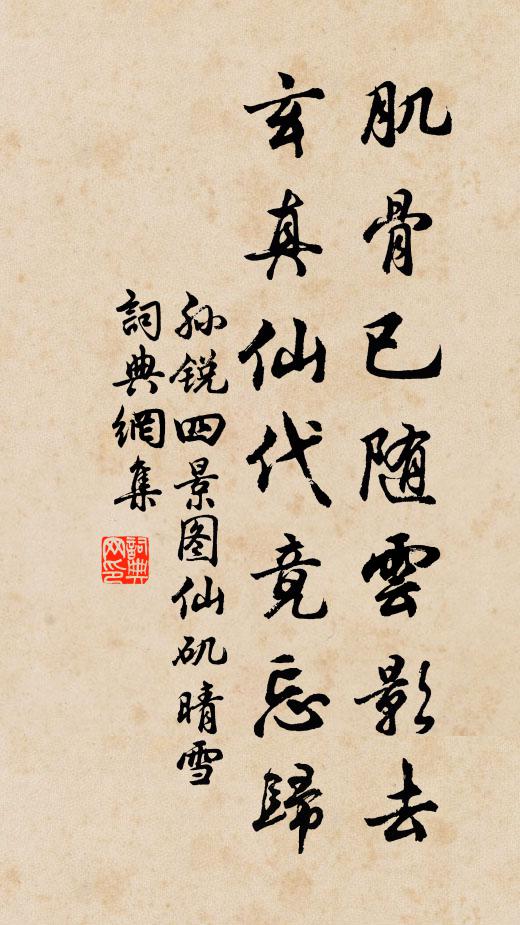 肌骨已随雲影去
玄真仙代竟忘歸
孙锐四景图仙矶晴雪
詞典網集
詞典網印